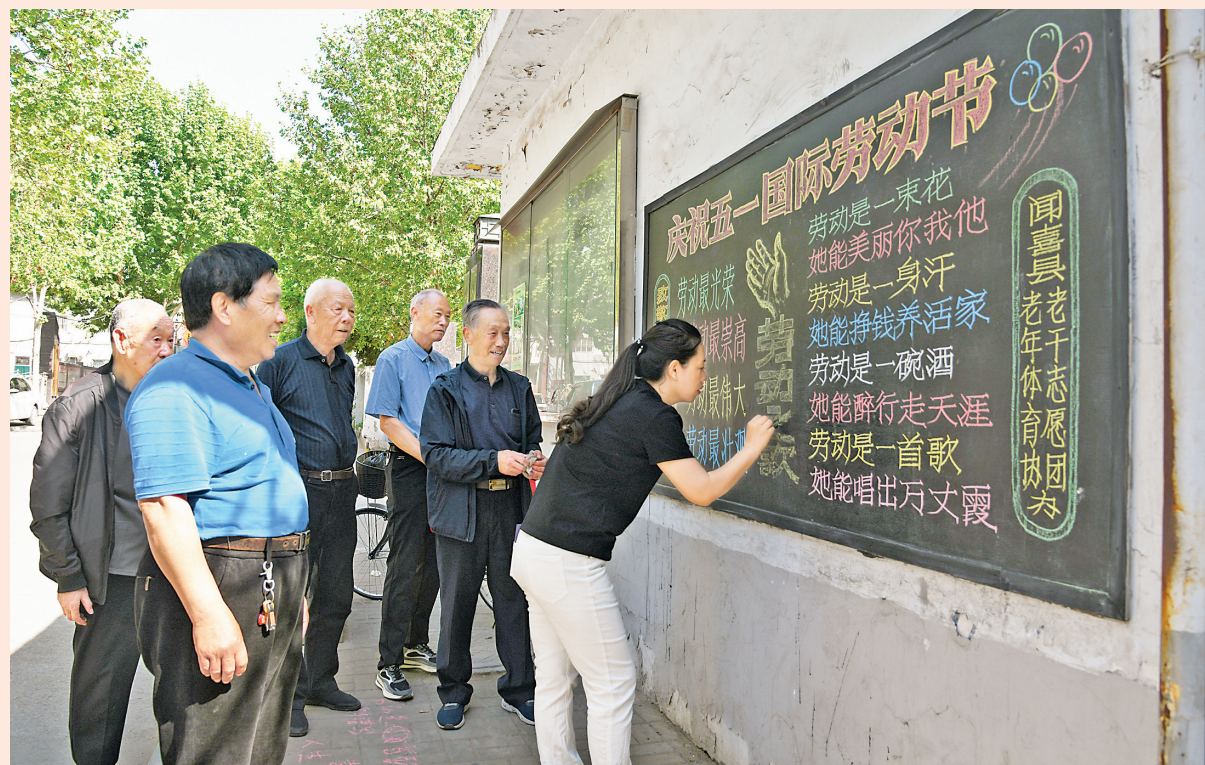 庆祝五一国际劳动节
劳动最光荣
动最崇高
劳动最伟大
劳动最壮
劳动
歌
劳动是一束花
她能美丽你我他
劳动是一身汗
她能挣钱养活家
劳动是一碗酒
她能醉行走天涯
劳动是一首歌
她能唱出万丈霞
闻喜县
老干志愿团
老年体育协